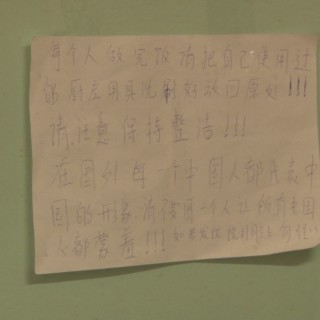 每个人做完饭请把自己使用过
的厨房用具洗刷好放回原处!!!
请注意保持整洁!!!
在国外每一个中国人都代表中
国的形象请 一个人让所有中国
人都蒙羞!!!